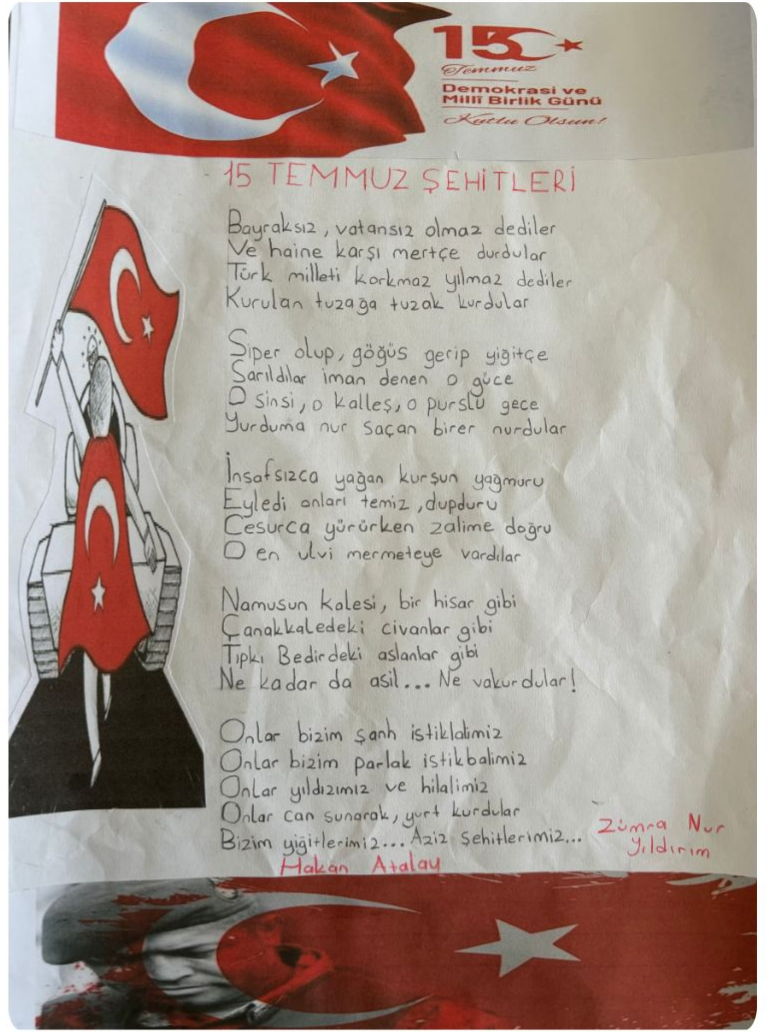 15
Temmuz
Demokrasi ve
Millî Birlik Günü
Kutlu Olsun!
15 TEMMUZ ŞEHİTLERİ
Bayraksız, vatansız olmaz dediler
Ve haine karşı mertçe durdular
Türk milleti korkmaz yılmaz dediler
Kurulan tuzağa tuzak kurdular
Siper olup, göğüs gerip yiğitçe
Sarıldılar iman denen o güce
O sinsi, o kalleş, o purslu gece
Yurduma nur saçan birer nurdular
İnsafsızca yağan kurşun yağmuru
Eyledi onları temiz, dupduru
Cesurca yürürken zalime doğru
O en ulvi mermeteye vardılar
Namusun kalesi, bir hisar gibi
Çanakkaledeki civanlar gibi
Tıpkı Bedirdeki aslanlar gibi
Ne kadar da asil... Ne vakurdular!
Onlar bizim şanlı istiklalimiz
Onlar bizim parlak istikbalimiz
Onlar yıldızımız ve hilalimiz
Onlar can sunarak, yurt kurdular
Bizim yiğitlerimiz... Aziz Şehitlerimiz...
Zümra Nur
Yıldırım
Hakan Atalay